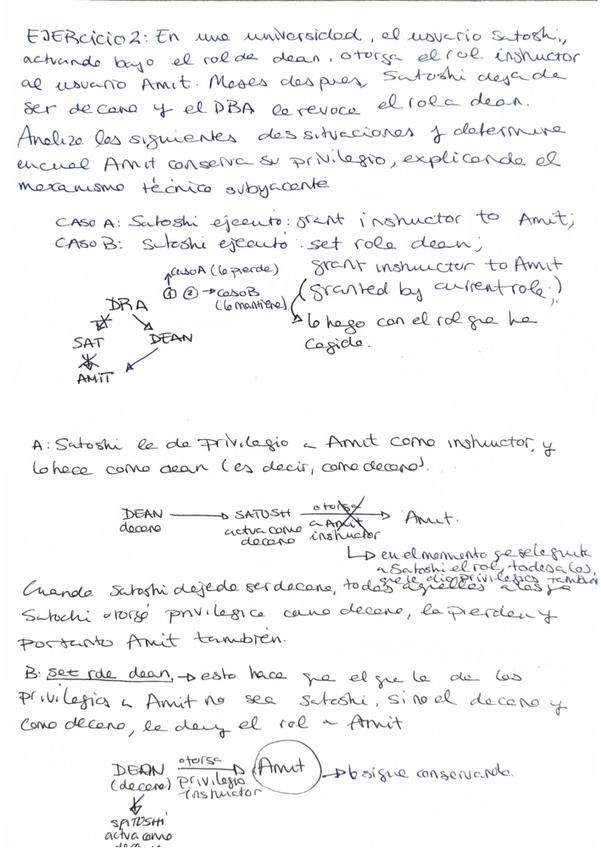 EJERcicio 2: En una universidad, el usuario Satoshi,
actuando bajo el rol de dean, otorga el rol instructor
al usuario Amit. Meses despues, Satoshi deja de
ser decano y el DBA le revoca el rol a dean.
Analiza las siguientes dos situaciones y determine
en cual Amit conserva su privilegio, explicando el
mecanismo técnico subyacente
CASO A: Satoshi ejecuto: grant instructor to Amit;
CASO B: Satoshi ejecuto: set role dean;
grant instructor to Amit
(granted by current role;)
lo hago con el rol que ha
cogido.
caso A (lo pierde)
① ② → caso B
(lo mantiene)
DBA
SAT DEAN
AMIT
A: Satoshi le da privilegio a Amit como instructor, y
lo hace como dean (es decir, como decano).
DEAN → SATOSH otorga → Amit.
decano actua como a Amit
decano instructor
↳ en el momento que se le quita
a Satoshi el rol, todos a los
que le dio privilegios tambien
Cuando Satoshi deje de ser decano, todos aquellos a los que
Satochi otorgó privilegios como decano, lo pierden y
por tanto Amit también.
B: set role dean, → esto hace que el que le da los
privilegios a Amit no sea Satoshi, sino el decano y
como decano, le dan el rol a Amit
DEAN otorga → Amit → lo sigue conservando.
(decano) privilegio
instructor
SATOSHI
actua como